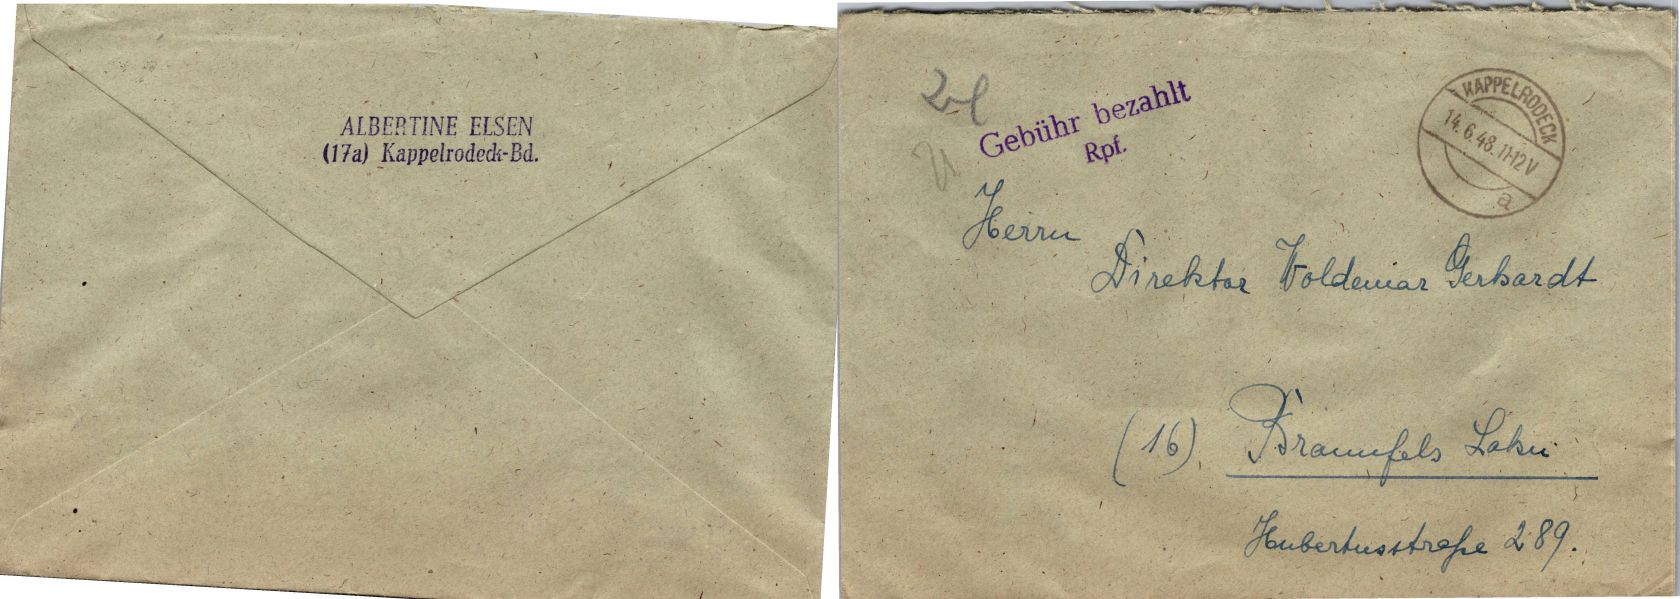 ALBERTINE ELSEN
(17a) Kappelrodeck-Bd.
Gebühr bezahlt
Rpf.
KAPPELRODECK
14.6.48.11-12V
a
Herrn
Direktor Woldemar Gerhardt
(16) Braunfels Lahn
Hubertusstraße 289.